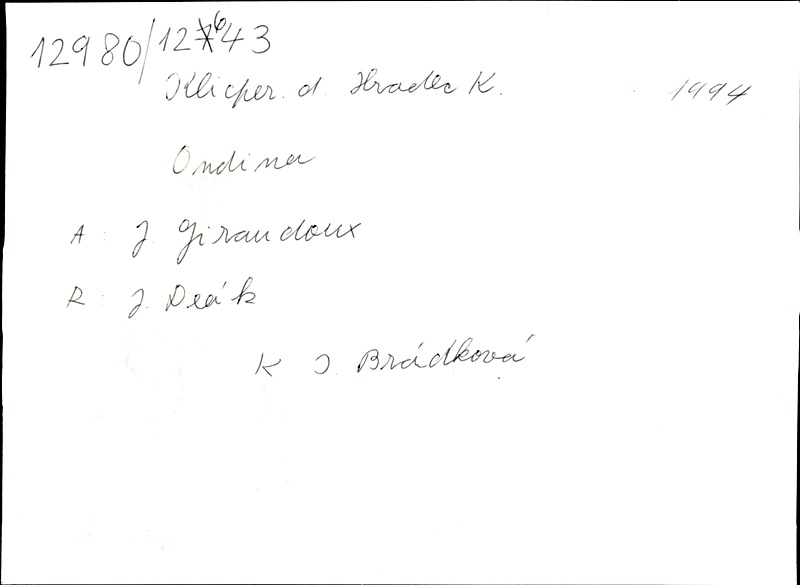 12980/12643
Klicper. d. Hradec K. 1994
Ondina
A: J. Giraudoux
R: J. Deák
K J. Brádková